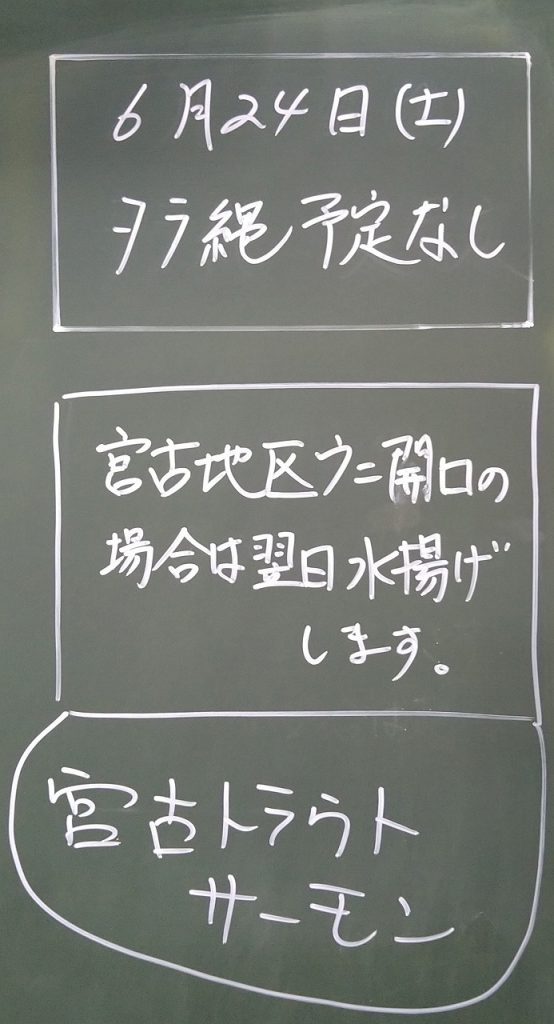 6月24日(土)
タラ縄予定なし
宮古地区ウニ開口の
場合は翌日水揚げ
します。
宮古トラウト
サーモン